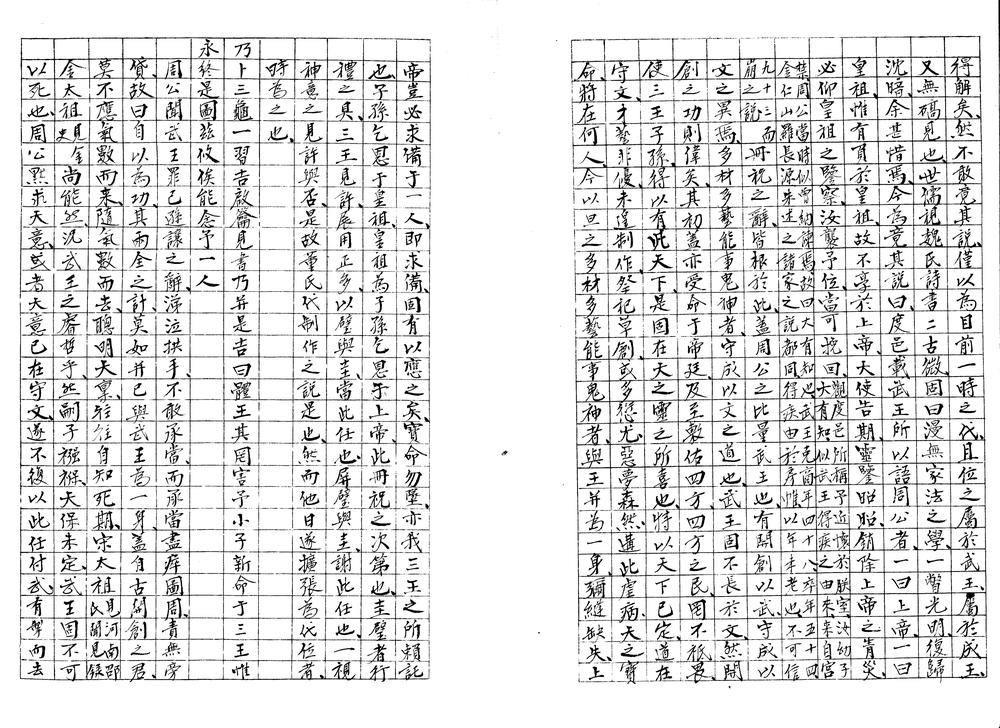 得解矣、然不敢竟其說、僅以為目前一時之代、且位之屬於武王、屬於成王、
又無確見也、世儒視魏氏詩書二古微、固曰漫無家法之學、一瞥光明、復歸
沈晦、余甚惜焉、今為竟其說曰、度邑載武王所以語周公者、一曰上帝、一曰
皇祖、惟有罪於皇祖、故不享於上帝、天使告期、靈鑒昭昭、銷除上帝之眚災、
必仰皇祖之鑒察、汝襲予位、當可挽回、觀度邑所稱予近懷於朕室汝幼子大有知似武王得疾之由來自宮
禁周公當時似曾納焉故曰大有知也武王克商年四十八卒年五十四金仁山羅長源朱述之諸家之說都同得疾由於房帷以年未老也不可信
九十三而崩之說冊祝之辭、皆根於此、蓋周公之比量武王也、有開創以武、守成以
文之異焉、多材多藝能事鬼神者、守成以文之道也、武王固不長於文、然開
創之功則偉矣、其初蓋亦受命于帝廷、及至敷佑四方、四方之民罔不祗畏、
使三王子孫、得以有此天下、是固在天之靈之所喜也、特以天下已定、道在
守文、才藝非優、未遑制作、祭祀草創、或多愆尤、惡夢森然、遘此虐病、天之寶
命、將在何人、今以旦之多材多藝能事鬼神者、與王并為一身、彌縫缺失、上
帝豈必求備于一人、即求備、固有以應之矣、寶命勿墜、亦我三王之所賴託
也、子孫乞恩于皇祖、皇祖為子孫乞恩于上帝、此冊祝之次第也、圭璧者行
禮之具、三王見許、展用正多、以璧與圭、當此任也、屏璧與圭、謝此任也、一視
神意之見許與否、是故量氏代制作之說是也、然而他日遂擴張為代位者、
時為之也、
乃卜三龜一習吉啟籥見書乃并是吉曰體王其罔害予小子新命于三王惟
永終是圖茲攸俟能念予一人
周公聞武王罪己遜讓之辭、涕泣拱手、不敢承當、而承當盡瘁圖周、責無旁
貸、故曰自以為功、其兩全之計、莫如并己與武王為一身、蓋自古開創之君、
莫不應氣數而來、隨氣數而去、聰明天稟、往往自知死期、宋太祖見河南邵氏聞見錄
金太祖見金史尚能然、況武王之睿哲乎、然嗣子襁褓、天保未定、武王固不可
以死也、周公默求天意、或者天意已在守文、遂不復以此任付武、有舉而去